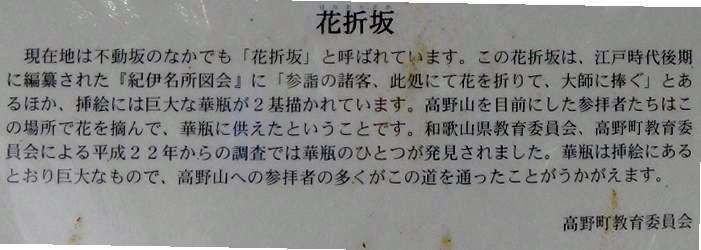 花折坂
現在地は不動坂のなかでも「花折坂」と呼ばれています。この花折坂は、江戸時代後期
に編纂された『紀伊名所図会』に「参詣の諸客、此処にて花を折りて、大師に捧ぐ」とあ
るほか、挿絵には巨大な華瓶が２基描かれています。高野山を目前にした参拝者たちはこ
の場所で花を摘んで、華瓶に供えたということです。和歌山県教育委員会、高野町教育委
員会による平成２２年からの調査では華瓶のひとつが発見されました。華瓶は挿絵にある
とおり巨大なもので、高野山への参拝者の多くがこの道を通ったことがうかがえます。
高野町教育委員会